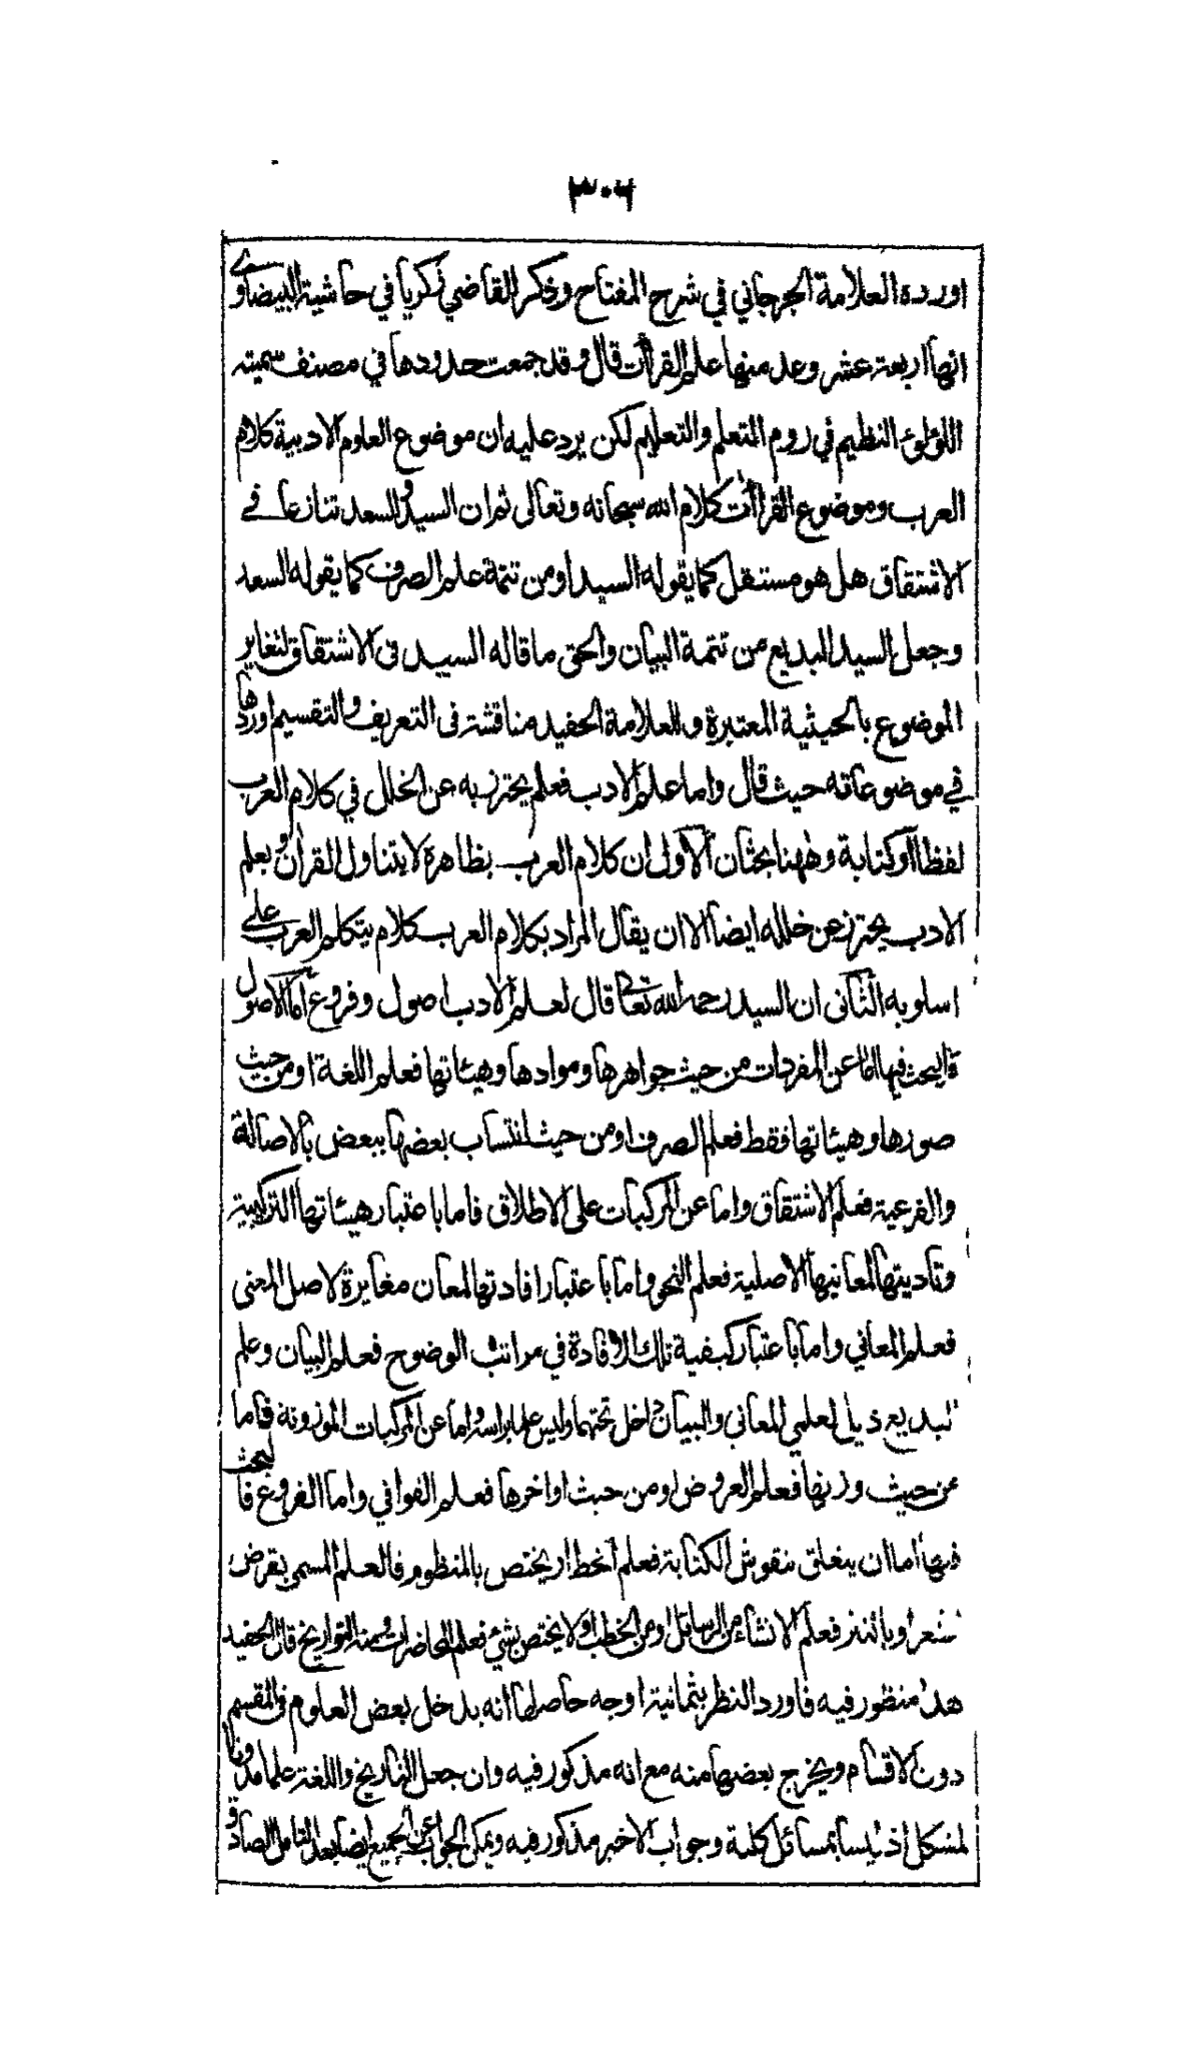 ٣٠٦
اورده العلامة الجرجاني في شرح المفتاح وذكر القاضي زكريا في حاشية البيضاوي
انها اربعة عشر وعد منها علم القرأت قال وقد جمعت حدودها في مصنف سميته
اللؤلؤ النظيم في روم التعلم والتعليم لكن يرد عليه ان موضوع العلوم الادبية كلام
العرب وموضوع القراأت كلام الله سبحانه وتعالى ثم ان السيد والسعد تنازعا في
الاشتقاق هل هو مستقل كما يقوله السيد او من تتمة علم الصرف كما يقوله السعد
وجعل السيد البديع من تتمة البيان والحق ما قاله السيد في الاشتقاق لتغاير
الموضوع بالحيثية المعتبرة وللعلامة الحفيد مناقشة في التعريف والتقسيم اوردها
في موضوعاته حيث قال واما علم الادب فعلم يحترز به عن الخلل في كلام العرب
لفظا او كتابة وههنا بحثان الاول ان كلام العرب بظاهره لا يتناول القرأن وبعلم
الادب يحترز عن خلله ايضا الا ان يقال المراد بكلام العرب كلام يتكلم العرب على
اسلوبه الثاني ان السيد رحمه الله تعالى قال لعلم الادب اصول وفروع اما الاصول
فالبحث فيها اما عن المفردات من حيث جواهرها وموادها وهيئاتها فعلم اللغة او من حيث
صورها وهيئاتها فقط فعلم الصرف او من حيث انتساب بعضها ببعض بالاصالة
والفرعية فعلم الاشتقاق واما عن المركبات على الاطلاق فاما باعتبار هيئاتها التركيبية
وتاديتها لمعانيها الاصلية فعلم النحو واما باعتبار افادتها لمعان مغايرة لاصل المعنى
فعلم المعاني واما باعتبار كيفية تلك الافادة في مراتب الوضوح فعلم البيان وعلم
البديع ذيل لعلمي المعاني والبيان داخل تحتهما وليس علما براسه واما عن المركبات الموزونة فاما
من حيث وزنها فعلم العروض او من حيث اواخرها فعلم القوافي واما الفروع فالبحث
فيها اما ان يتعلق بنقوش الكتابة فعلم الخط او يختص بالمنظوم فالعلم المسمى بقرض
شعر او بالنثر فعلم الانشاء من الرسائل او من الخطب او لا يختص بشئ فعلم المحاضرات ومنه التواريخ قال الحفيد
هذا منظور فيه فاورد النظر بثمانية اوجه حاصلها انه يدخل بعض العلوم في المقسم
دون الاقسام ويخرج بعضها منه مع انه مذكور فيه وان جعل التاريخ واللغة علما مدونا
لمشكل اذ ليسا بمسائل كلية وجواب الاخير مذكور فيه ويمكن الجواب عن الجميع ايضا بعد التامل الصادق